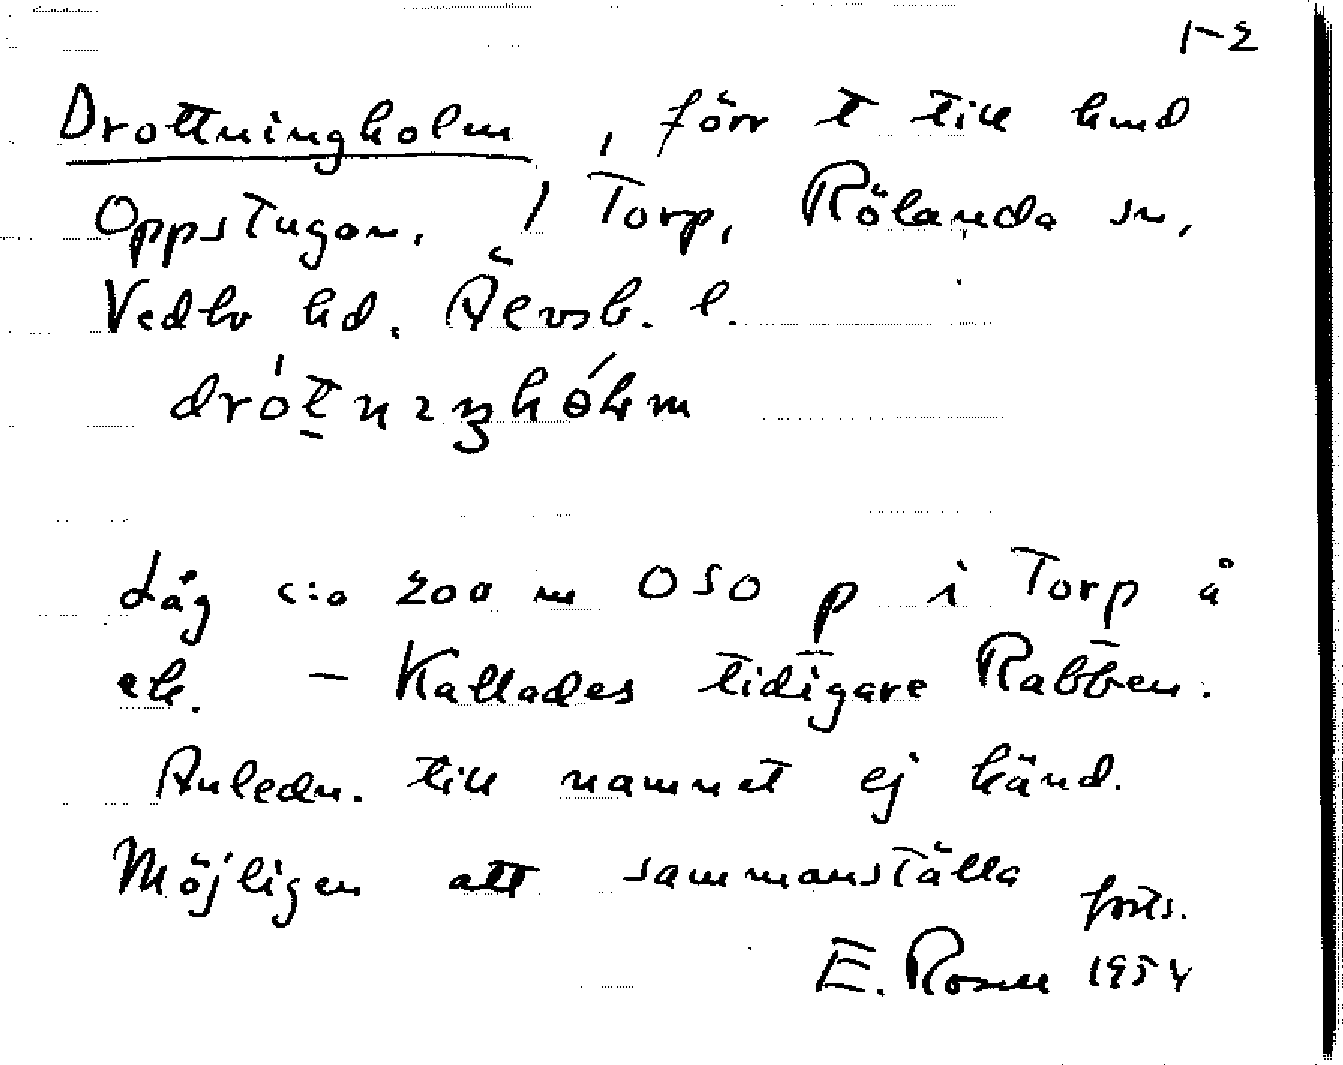 1-2
Drottningholm, förr t till hmd
Oppstugan. / Torp, Rölanda sn,
Vedbo hd. Älvsb. l.
Låg c:a 200 m OSO p i Torp å
ek. - Kallades tidigare Rabben.
Anledn. till namnet ej känd.
Möjligen att sammanställa
forts.
E. Rosell 1954